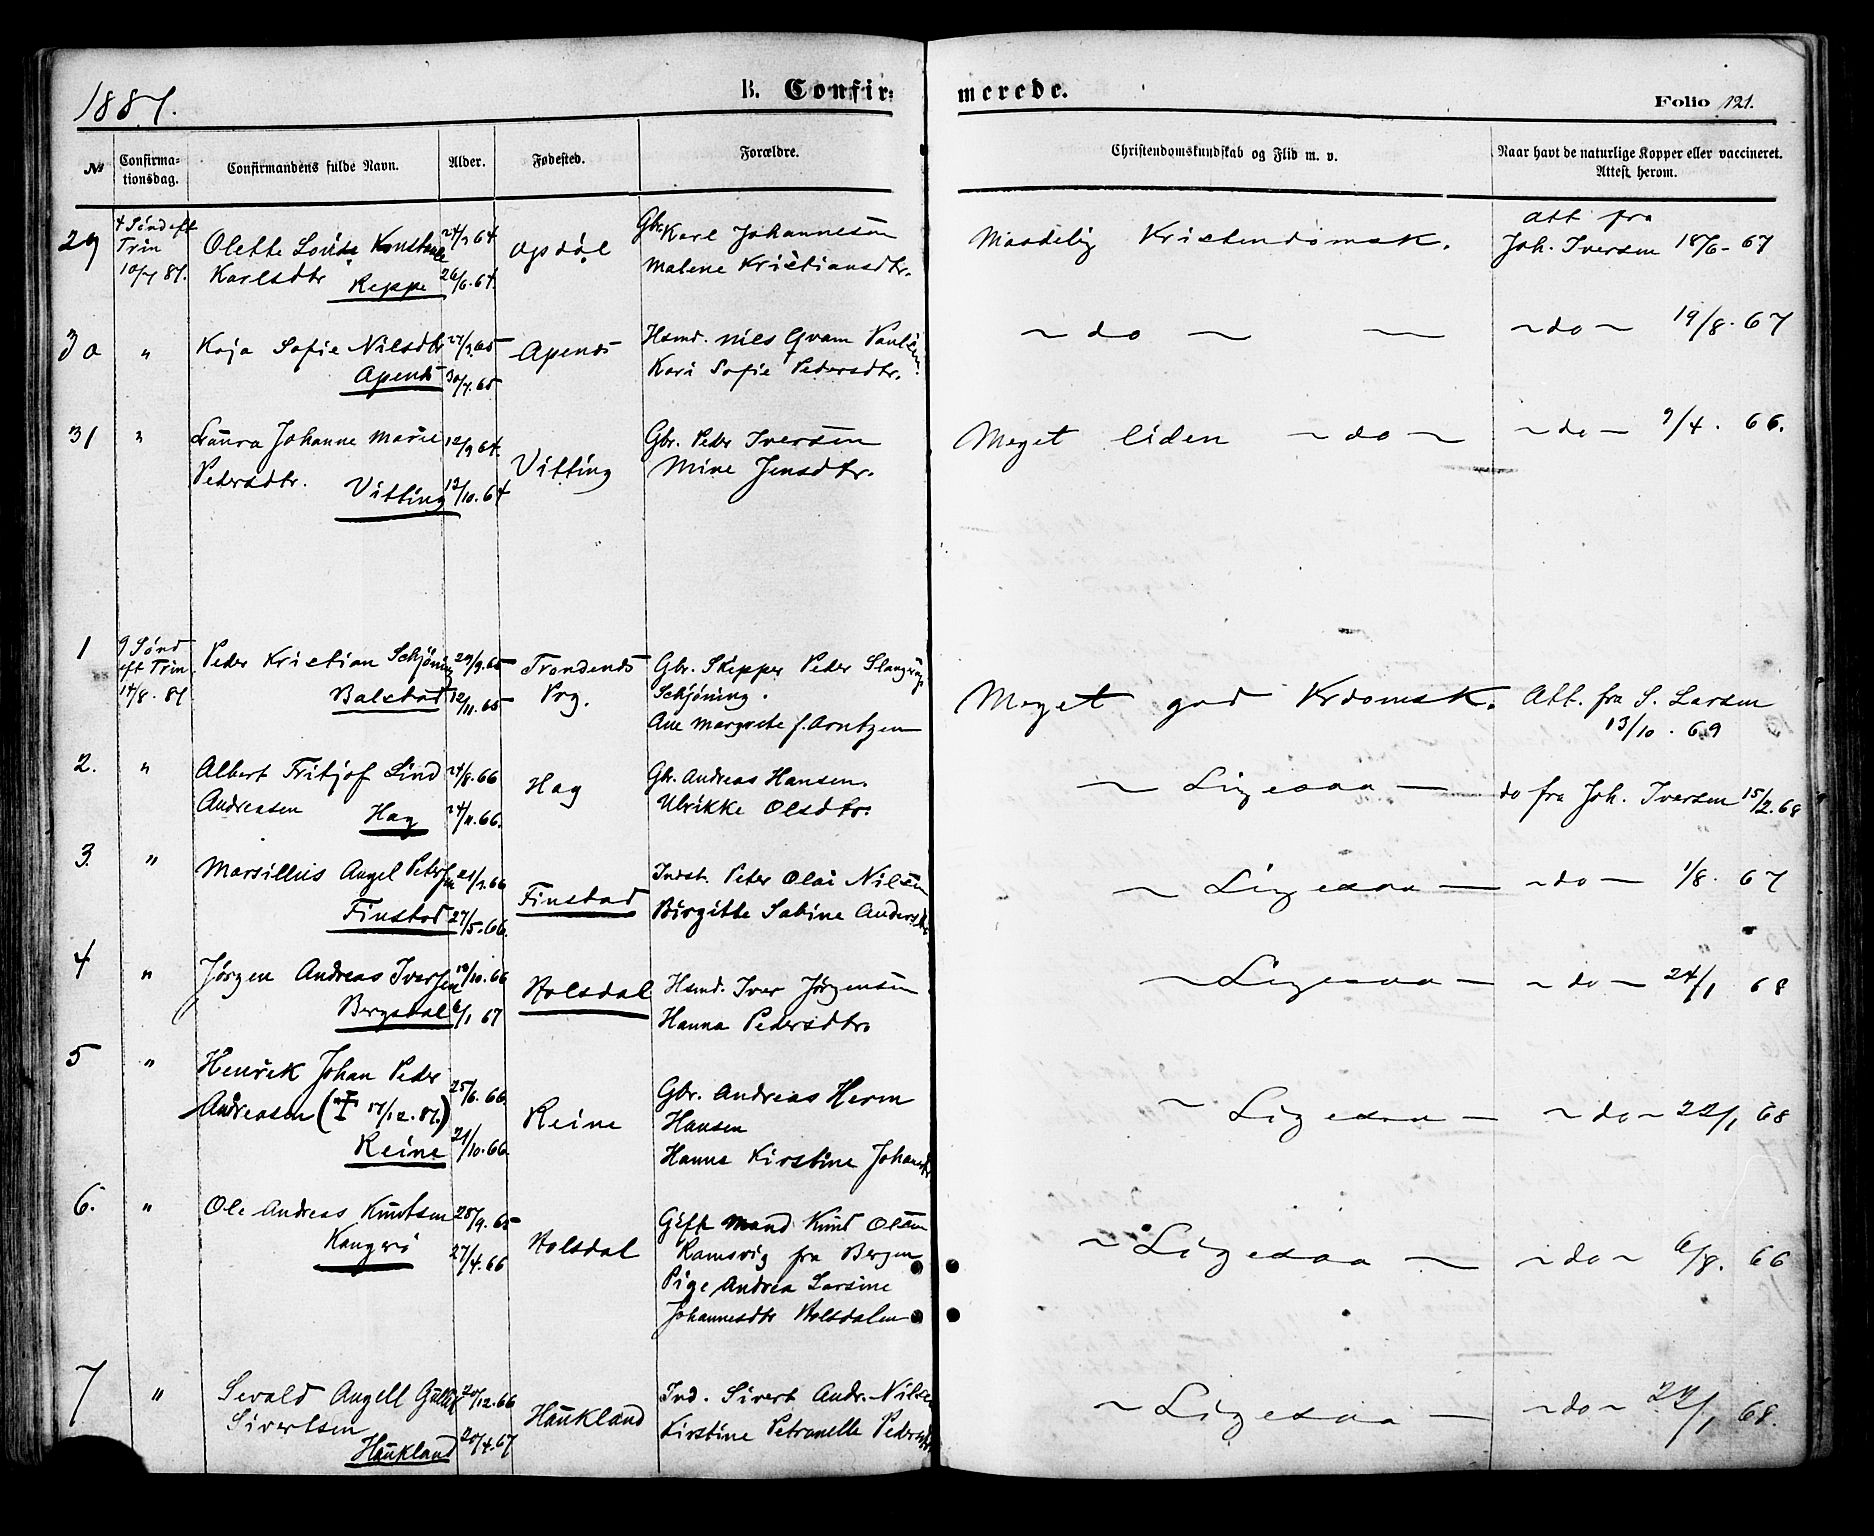 1881.
B. Confirmerede.
Folio 121.
No
Confirmationsdag.
Confirmandens fulde Navn.
Alder.
Fødested.
Forældre.
Christendomskundskab og Flid m. v.
Naar havt de naturlige Kopper eller vaccineret.
Attest herom.
29
4 Sønd eft
Trin
10/7 81.
Olette Lovise
Karlsdtr
Reppe
26/6.64.
Gbr. Karl Johannesen
Malene Kristiansdtr.
Maadelig Kristendomsk.
Att fra
Joh. Iversen 18/6-67
30
"
Kaja Sofie Nilsdtr
Apenes
30/7.65
Apenes
Hsmd. Nils Qvam
Kari Sofie Pedersdtr.
~ do ~ —
~ do ~ 19/8.67
31
"
Laura Johanne Marie
Pedersdtr.
Vitting
12/9 64.
Vitting
Gbr. Peder Iversen
Mine Jensdtr.
Meget liden ~ do ~
~ do — 9/4. 66.
1
9 Sønd
eft Trin.
14/8. 81.
Peder Kristian Schjøning
Balstad
29/9.65
12/11.65
Trondenes
Prg.
Gbr. Skipper Peder
Schjøning.
Ane Margrete f. Arntzen
Meget god Krdomsk.
Att. fra S. Larsen
13/10. 69
2.
"
Albert Fritjof Lind
Andreasen
Hag
24/8.66
24/11.66.
Hag
Gbr. Andreas Hansen.
Ulrikke Olsdtr.
~ Ligesaa —
do fra Joh. Iversen 15/2.68
3.
"
Marsillius Angel Petersen
Finstad
27/5.66.
Finstad
Indst. Peter Olai Nilsen
Birgitte Sabine Andersdtr
~ Ligesaa —
~ do — 1/8. 67
4
"
Jørgen Andreas Iversen
Bergsdal
10/10.66
6/1 67
Holsdal
Hsmd. Iver Jørgensen
Hanna Pedersdtr.
~ Ligesaa —
~ do ~ 24/1 68
5
"
Henrik Johan Peder
Andreasen († 17/12.81.)
Reine
25/6.66.
21/10.66.
Reine
Gbr. Andreas Herm
Hansen
Hanna Kirstine Johansdtr
~ Ligesaa —
~ do ~ 22/1 68
6.
"
Ole Andreas Knutsen
Kangerø
28/9.65
27/4.66
Holsdal
Gift Mand Knut Olsen
Ramsvig fra Bergen
Pige Andrea Larsine
Johannesdtr Holsdalen
~ Ligesaa ~
~ do ~ 6/8. 66
7
"
Sevald Angell
Sivertsen
Haukland
20/12.66
20/4.67
Haukland
Ind. Sivert Andr. Nilsen
Kirstine Petronelle Pedersdtr.
~ Ligesaa —
~ do ~ 22/1 68.